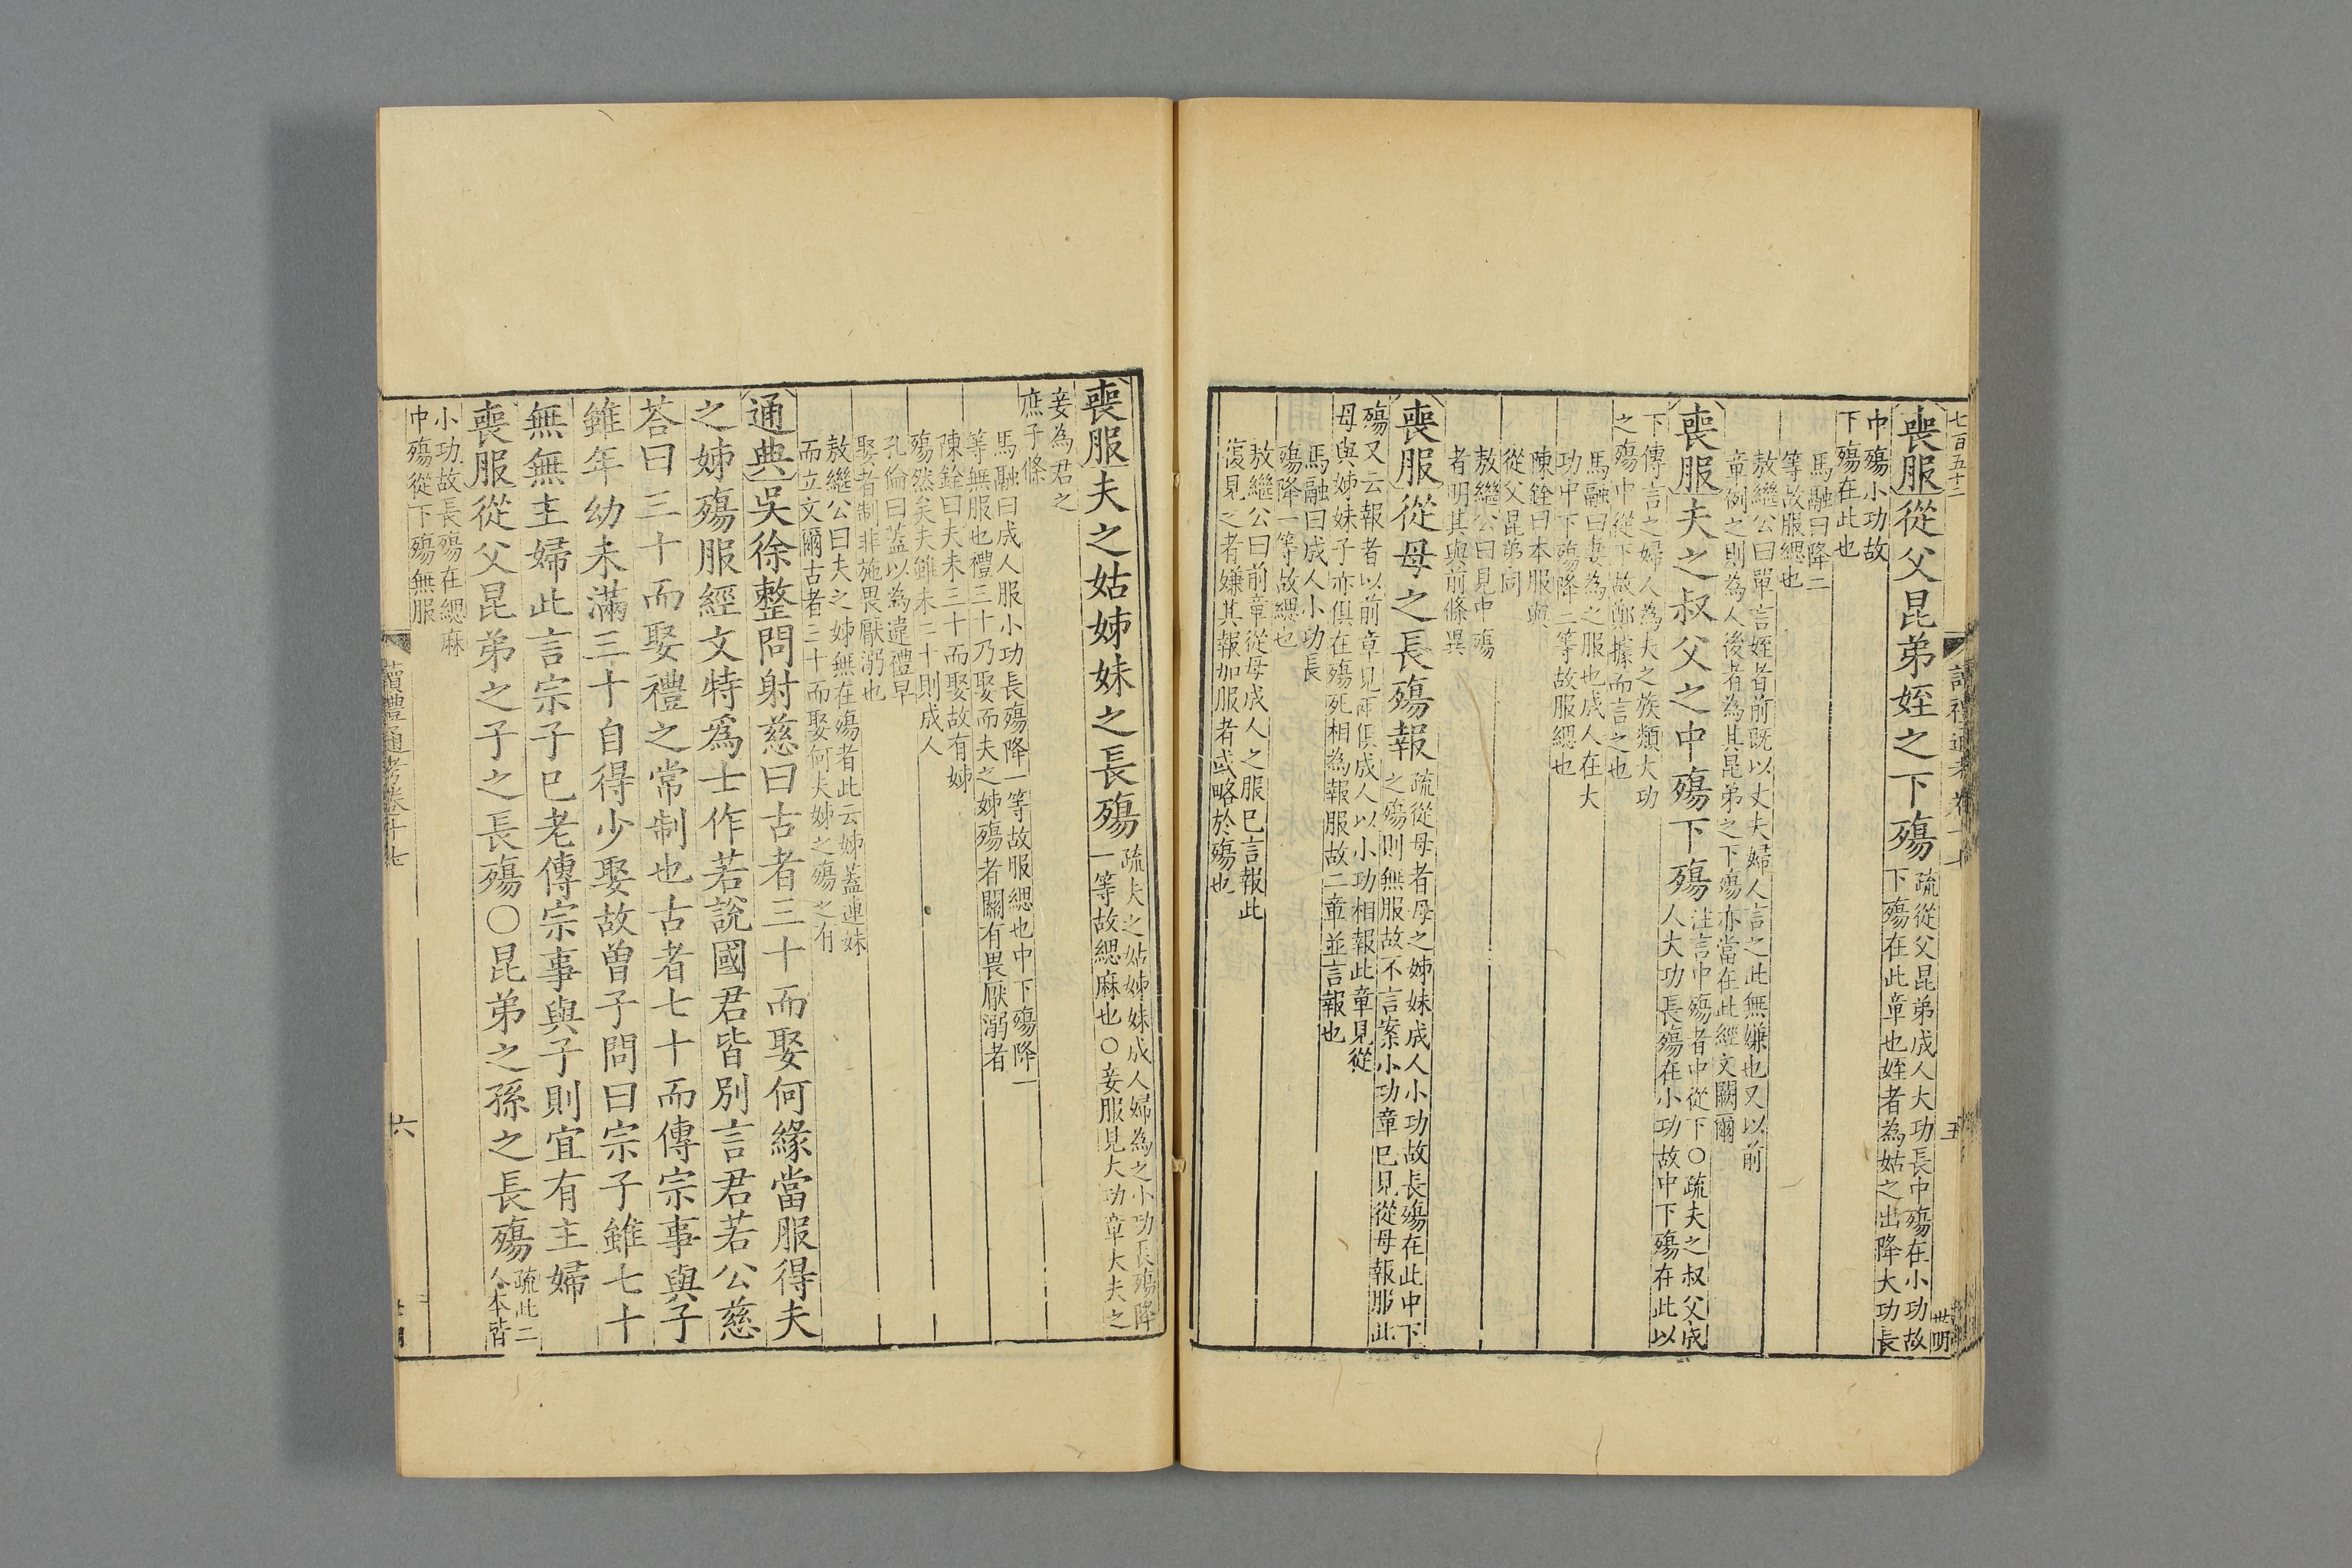 七百五十二
喪服從父昆弟姪之下殤疏從父昆弟成人大功長中殤在小功故
下殤在此章也姪者為姑之出降大功長
中殤小功故
下殤在此也
馬融曰降二
等故服緦也
敖繼公曰單言姪者前既以丈夫婦人言之此無嫌也又以前
章例之則為人後者為其昆弟之下殤亦當在此經文闕爾
喪服夫之叔父之中殤下殤注言中殤者中從下○疏夫之叔父成
人大功長殤在小功故中下殤在此以
下傳言之婦人為夫之族類大功
之殤中從下故鄭據而言之也
馬融曰妻為之服也成人在大
功中下殤降二等故服緦也
陳銓曰本服與
從父昆弟同
敖繼公曰見中殤
者明其與前條異
喪服從母之長殤報疏從母者母之姊妹成人小功故長殤在此中下
之殤則無服故不言案小功章已見從母報服此
殤又云報者以前章見兩俱成人以小功相報此章見從
母與姊妹子亦俱在殤死相為報服故二章並言報也
馬融曰成人小功長
殤降一等故緦也
敖繼公曰前章從母成人之服已言報此
復見之者嫌其報加服者或略於殤也
讀禮通考卷十七
五
世明
喪服夫之姑姊妹之長殤疏夫之姑姊妹成人婦為之小功長殤降
一等故緦麻也○妾服見大功章大夫之
妾為君之
庶子條
馬融曰成人服小功長殤降一等故服緦也中下殤降一
等無服也禮三十乃娶而夫之姊殤者關有畏厭溺者
陳銓曰夫未三十而娶故有姊
殤然矣夫雖未二十則成人
孔倫曰蓋以為違禮早
娶者制非施畏厭溺也
敖繼公曰夫之姊無在殤者此云姊蓋連妹
而立文爾古者三十而娶何夫姊之殤之有
通典吳徐整問射慈曰古者三十而娶何緣當服得夫
之姊殤服經文特爲士作若說國君皆別言君若公慈
荅曰三十而娶禮之常制也古者七十而傳宗事與子
雖年幼未滿三十自得少娶故曾子問曰宗子雖七十
無無主婦此言宗子已老傳宗事與子則宜有主婦
喪服從父昆弟之子之長殤○昆弟之孫之長殤疏此二
人本皆
小功故長殤在緦麻
中殤從下殤無服
讀禮通考卷十七
六